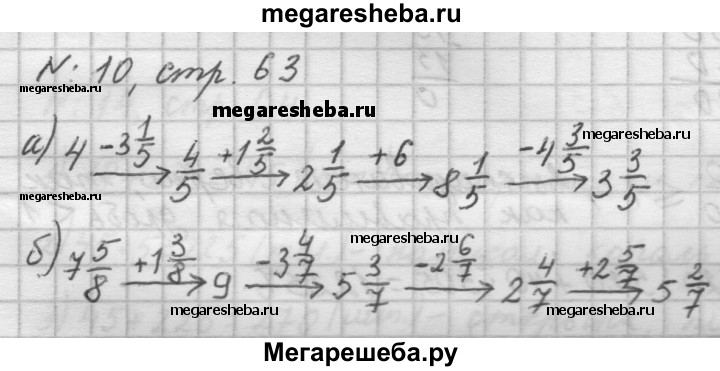 megaresheba.ru
N: 10, стр. 63
megaresheba.ru
megaresheba.ru
а) 4 -3 1/5 → 4/5 +1 2/5 → 2 1/5 +6 → 8 1/5 -4 3/5 → 3 3/5
megaresheba.ru
megaresheba.ru
megaresheba.ru
б) 7 5/8 +1 3/8 → 9 -3 4/7 → 5 3/7 -2 6/7 → 2 4/7 +2 5/7 → 5 2/7
megaresheba.ru
megaresheba.ru
Мегарешеба.ру